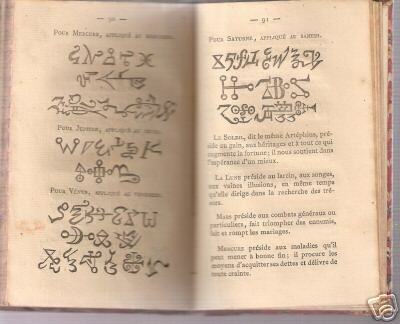 — 90 —
Pour Mercure, appliqué au mercredi.
Pour Jupiter, appliqué au jeudi.
Pour Vénus, appliqué au vendredi.
— 91 —
Pour Saturne, appliqué au samedi.
Le Soleil, dit le même Artéphius, pré-
side au gain, aux héritages et à tout ce qui
augmente la fortune; il nous soutient dans
l'espérance d'un mieux.
La Lune préside au larcin, aux songes,
aux vaines illusions, en même temps
qu'elle dirige dans la recherche des tré-
sors.
Mars préside aux combats généraux ou
particuliers, fait triompher des ennemis,
fait et rompt les mariages.
Mercure préside aux maladies qu'il
peut mener à bonne fin; il procure les
moyens d'acquitter ses dettes et délivre de
toute crainte.